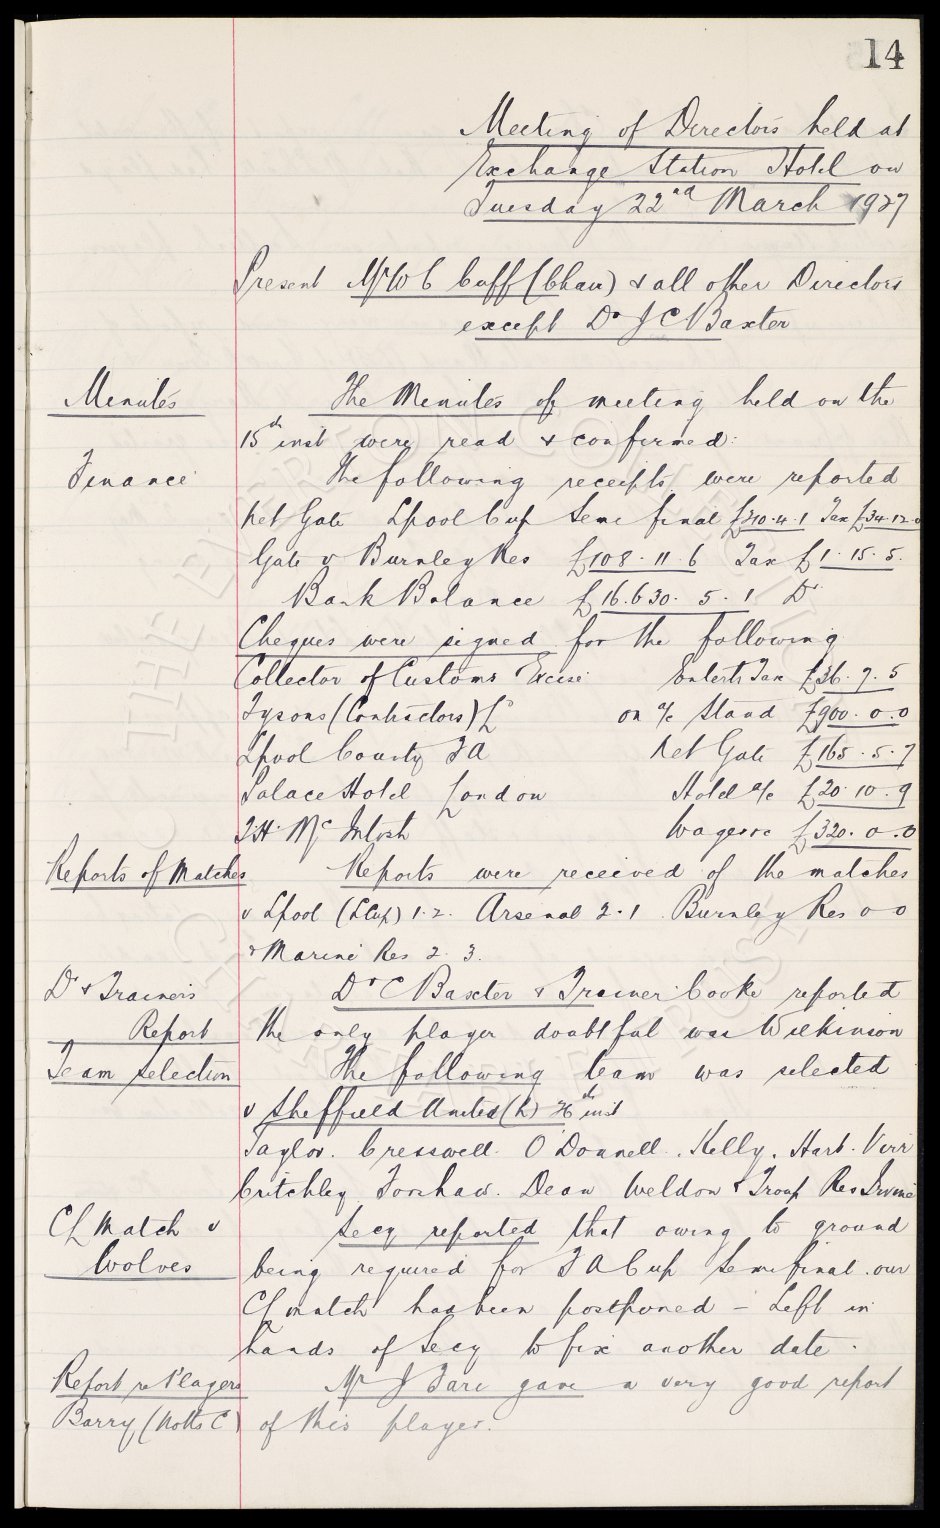 14
Meeting of Directors held at
Exchange Station Hotel on
Tuesday 22nd March 1927
Present Mr W C Cuff (Chair) & all other Directors
except Dr J C Baxter
Minutes The Minutes of meeting held on the
15th inst were read & confirmed:
Finance The following receipts were reported
Net Gate Lpool Cup Semi final £310.4.1 Tax £34.12.0
Gate v Burnley Res £108.11.6 Tax £1.15.5.
Bank Balance £16.630.5.1 Dr
Cheques were signed for the following
Collector of Customs Excise Enterts Tax £36.7.5
Tysons (Contractors) Ld on a/c Stand £900.0.0
Lpool County F A Net Gate £165.5.7
Palace Hotel London Hotel a/c £20.10.9
T.H. McIntosh Wages &c £320.0.0
Reports of Matches Reports were received of the matches
v Lpool (LCup) 1-2. Arsenal 2-1 Burnley Res 0-0
& Marine Res 2. 3.
Dr & Trainers Dr C Baxter & Trainer Cooke reported
Report the only player doubtful was Wilkinson
Team Selection The following team was selected
v Sheffield United (h) 26th inst
Taylor. Cresswell. O'Donnell. Kelly. Hart. Virr
Critchley Forshaw. Dean Weldon & Troup Res Irvine
CL Match v Secy reported that owing to ground
Wolves being required for F A Cup Semi final our
CL match has been postponed - Left in
hands of Secy to fix another date.
Report re Players Mr J Fare gave a very good report
Barry (Notts C) of this player.